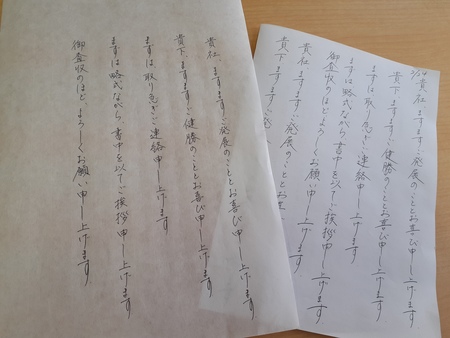 貴社 ますますご発展のこととお喜び申し上げます
貴下 ますますご健勝のこととお喜び申し上げます
まずは取り急ぎご連絡申し上げます
まずは略式ながら書中を以てご挨拶申し上げます
御査収のほどよろしくお願い申し上げます
貴社 ますますご発展のこととお喜び申し上げます
貴下 ますますご
貴社 ますますご発展のこととお喜び申し上げます
貴下 ますますご健勝のこととお喜び申し上げます
まずは取り急ぎご連絡申し上げます
まずは略式ながら書中を以てご挨拶申し上げます
御査収のほど、よろしくお願い申し上げます